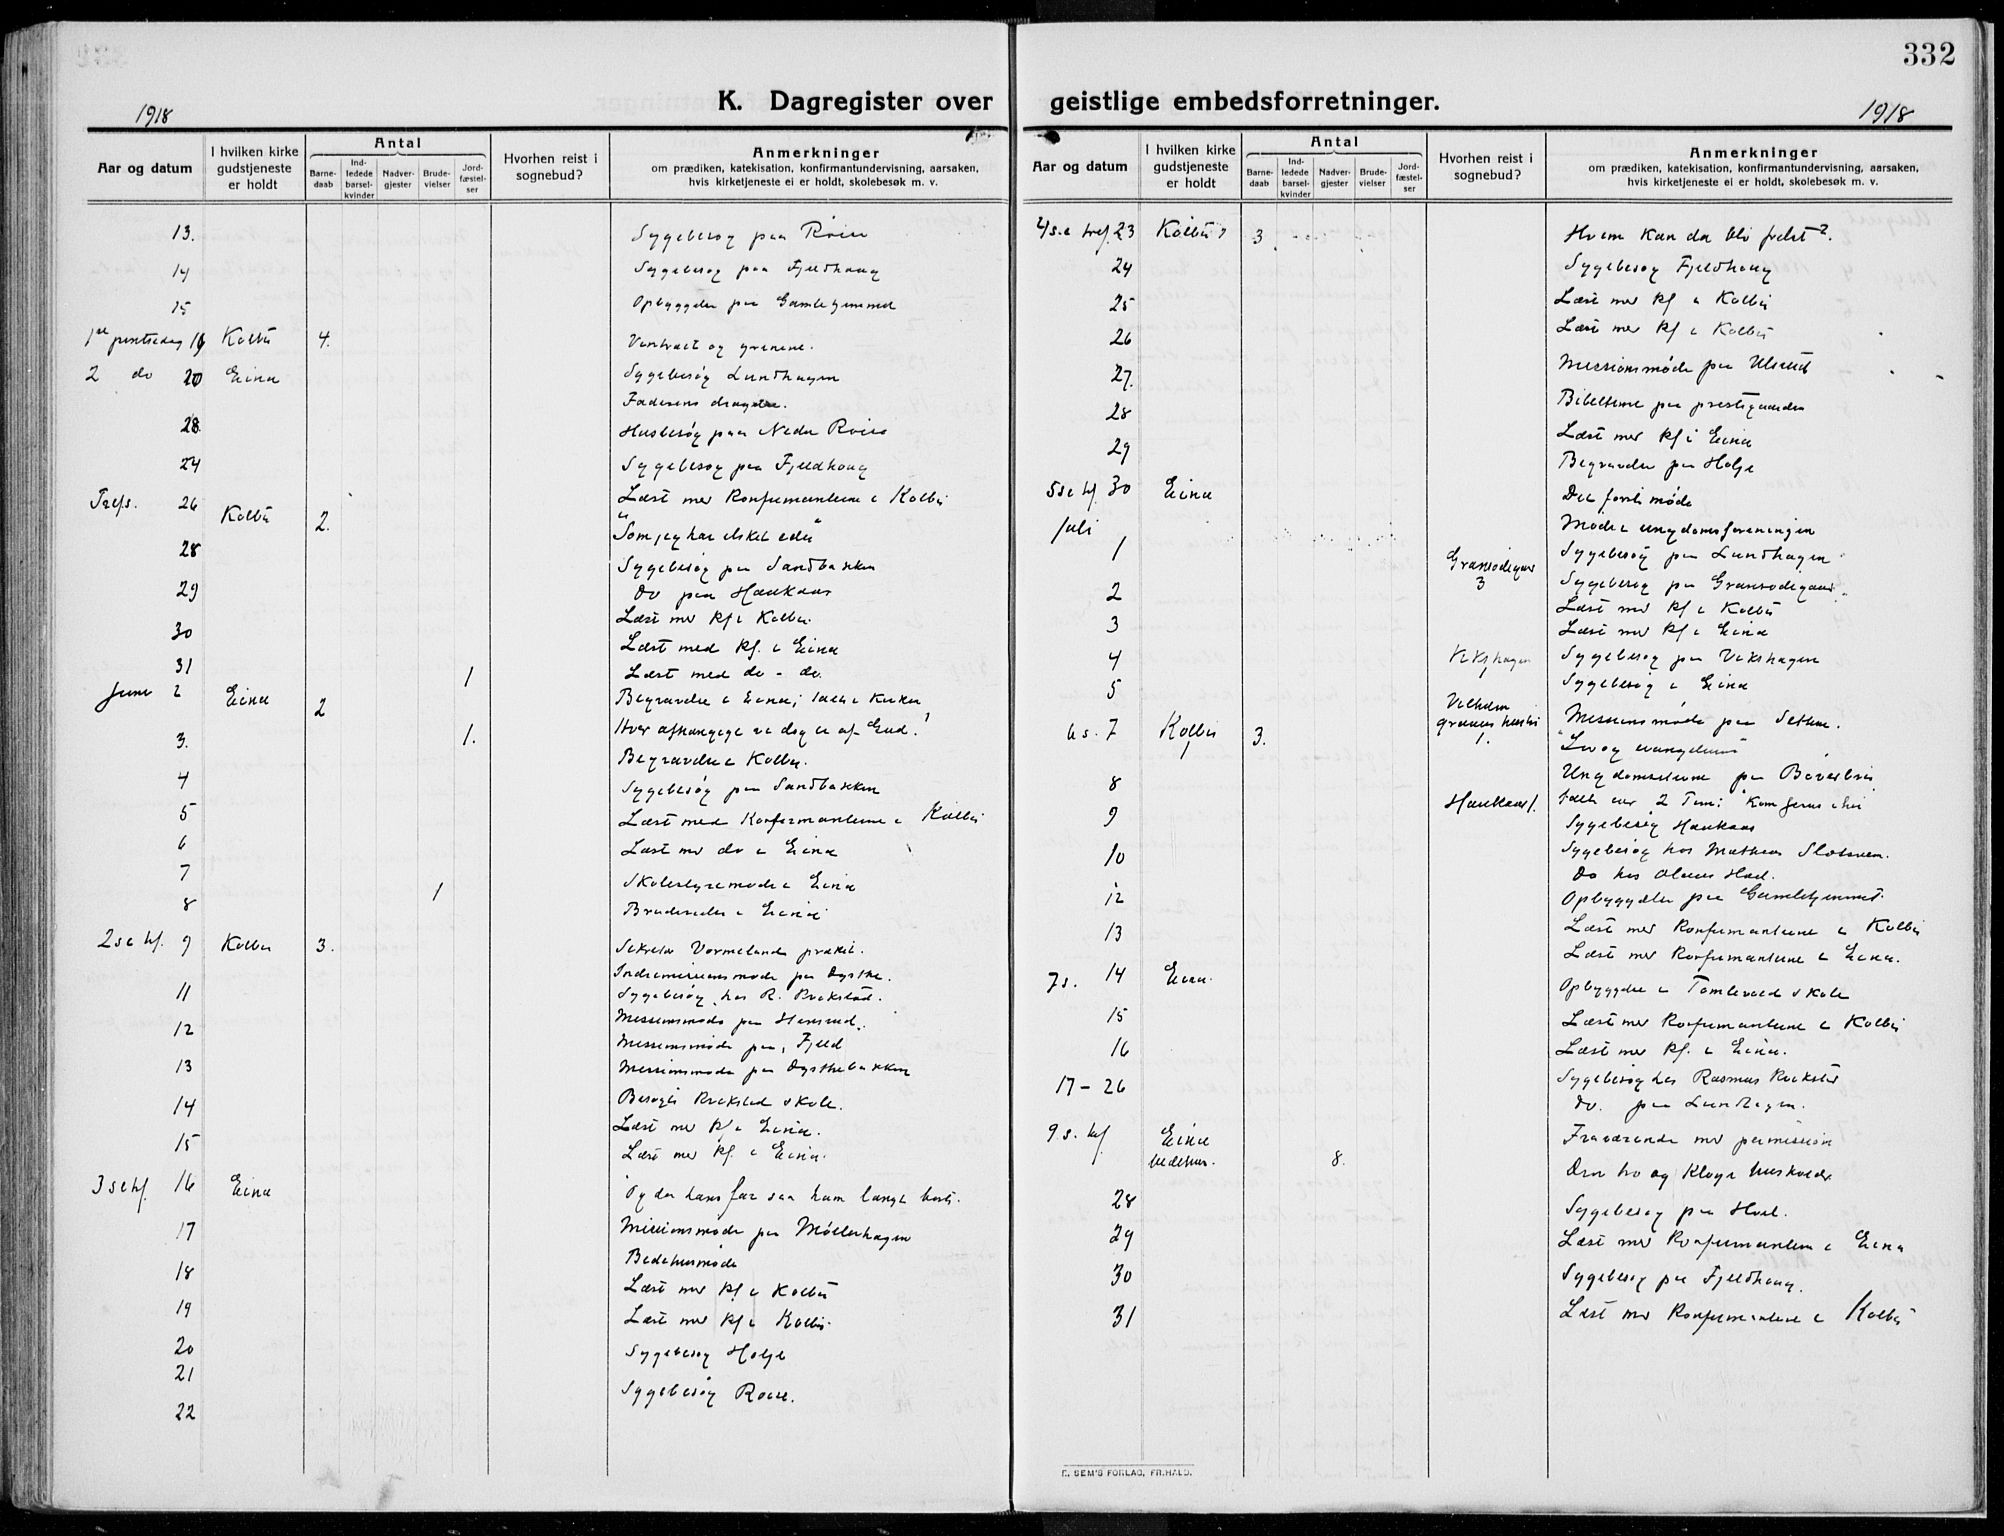 332
1918
K. Dagregister over geistlige embedsforretninger.
1918
Aar og datum
I hvilken kirke gudstjeneste er holdt
Antal
Barne-daab
Ind-ledede barsel-kvinder
Nadver-gjester
Brude-vielser
Jord-fæstel-ser
Hvorhen reist i sognebud?
Anmerkninger
om prædiken, katekisation, konfirmantundervisning, aarsaken,
hvis kirketjeneste ei er holdt, skolebesøk m. v.
13. Sygebesøg paa
14 Sygebesøg paa Fjeldhaug
15 Opbyggelse paa Gamlehjemmet
1ste pintsedag Kolbu 4. Vintræet og grenene.
2 do 20 Eina Sygebesøg Lundhagen
Faderens dragelse.
28 Husbesøg paa Nedre
24 Sygebesøg paa Fjeldhaug
Trefs. 26 Kolbu 2. Læst med Konfirmanterne i Kolbu
"Som jeg har elsket eder"
28 Sygebesøg paa Sandbakken
29 Do paa Haukaas
Læst med Kf i Kolbu.
30 Læst med Kf. i Eina
31 1 Læst med do - do.
Juni 2 Eina 2 Begravelse i Eina; talte i Kirken
3. 1. Hver afhængige
Begravelse i Kolbu.
4 Sygebesøg paa Sandbakken
5 Læst med Konfirmanterne i Kolbu
6 Læst med do i Eina
7 Skolestyremøde i Eina
8 1 Brudevielse i Eina
2 s e tref. 9 Kolbu 3. Sekretær Vormeland præket.
Indremissionsmøde paa Dysthe.
11 Sygebesøg hos R. Rokstad.
12 Missionsmøde paa
Missionsmøde paa Fjeld
13 Missionsmøde paa Dysthebakken
14 Besøgt Rokstad skole.
Læst med Kf i Eina.
15 Læst med Kf. i Eina.
3 s e tref. 16 Eina "Og da hans far saa ham langt borte.
17 Missionsmøde paa Møllerhagen
Bedehusmøde
18 Læst med Kf i Kolbu
19 Læst med Kf i Kolbu.
20 Sygebesøg Holje
21
22 Sygebesøg
Aar og datum
I hvilken kirke gudstjeneste er holdt
Antal
Barne-daab
Ind-ledede barsel-kvinder
Nadver-gjester
Brude-vielser
Jord-fæstel-ser
Hvorhen reist i sognebud?
Anmerkninger
om prædiken, katekisation, konfirmantundervisning, aarsaken,
hvis kirketjeneste ei er holdt, skolebesøk m. v.
4 s. e tref. 23 Kolbu 3 Hvem kan da bli frelst?
24 Sygebesøg Fjeldhaug
25 Læst med Kf i Kolbu
26 Læst med Kf i Kolbu
27. Missionsmøde paa Ulsrud
28 Bibeltime paa prestegaarden
29 Læst med Kf i Eina
Begravelse paa Holje
5 s e tref. 30 Eina Det første møde
Juli Møde i ungdomsforeningen
1 Sygebesøg paa Lundhagen
Sygebesøg paa
3
2 Læst med Kf i Kolbu
3 Læst med Kf i Eina
4 Sygebesøg paa
5 Sygebesøg i Eina
1
Missionsmøde paa Sethne.
6 s. 7 Kolbu 3. 1. "Lov og evangelium"
8 Ungdomsstevne paa Bøverbru
9 Haukaas 1. talte over 2 Tim:
Sygebesøg Haukaas
10 Sygebesøg hos Mathias
Do hos Olaus Hoel.
12 Opbyggelse paa Gamlehjemmet.
13 Læst med Konfirmanterne i Kolbu
Læst med Konfirmanterne i Eina.
7 s. 14 Eina. Opbyggelse i Tømlevold skole
15 Læst med Konfirmanterne i Kolbu
16 Læst med Kf. i Eina.
17 - 26 Sygebesøg hos Rasmus Rokstad
Do. paa Lundhagen.
9 s. tref. Eina bedehus. 8. Fraværende med permission
Den tro og kloge husholder
28 Sygebesøg paa Hoel.
29 Læst med Konfirmanterne i Eina
30 Sygebesøg paa Fjeldhaug.
31 Læst med Konfirmanterne i Kolbu
E. SEM'S FORLAG, FR.HALD.